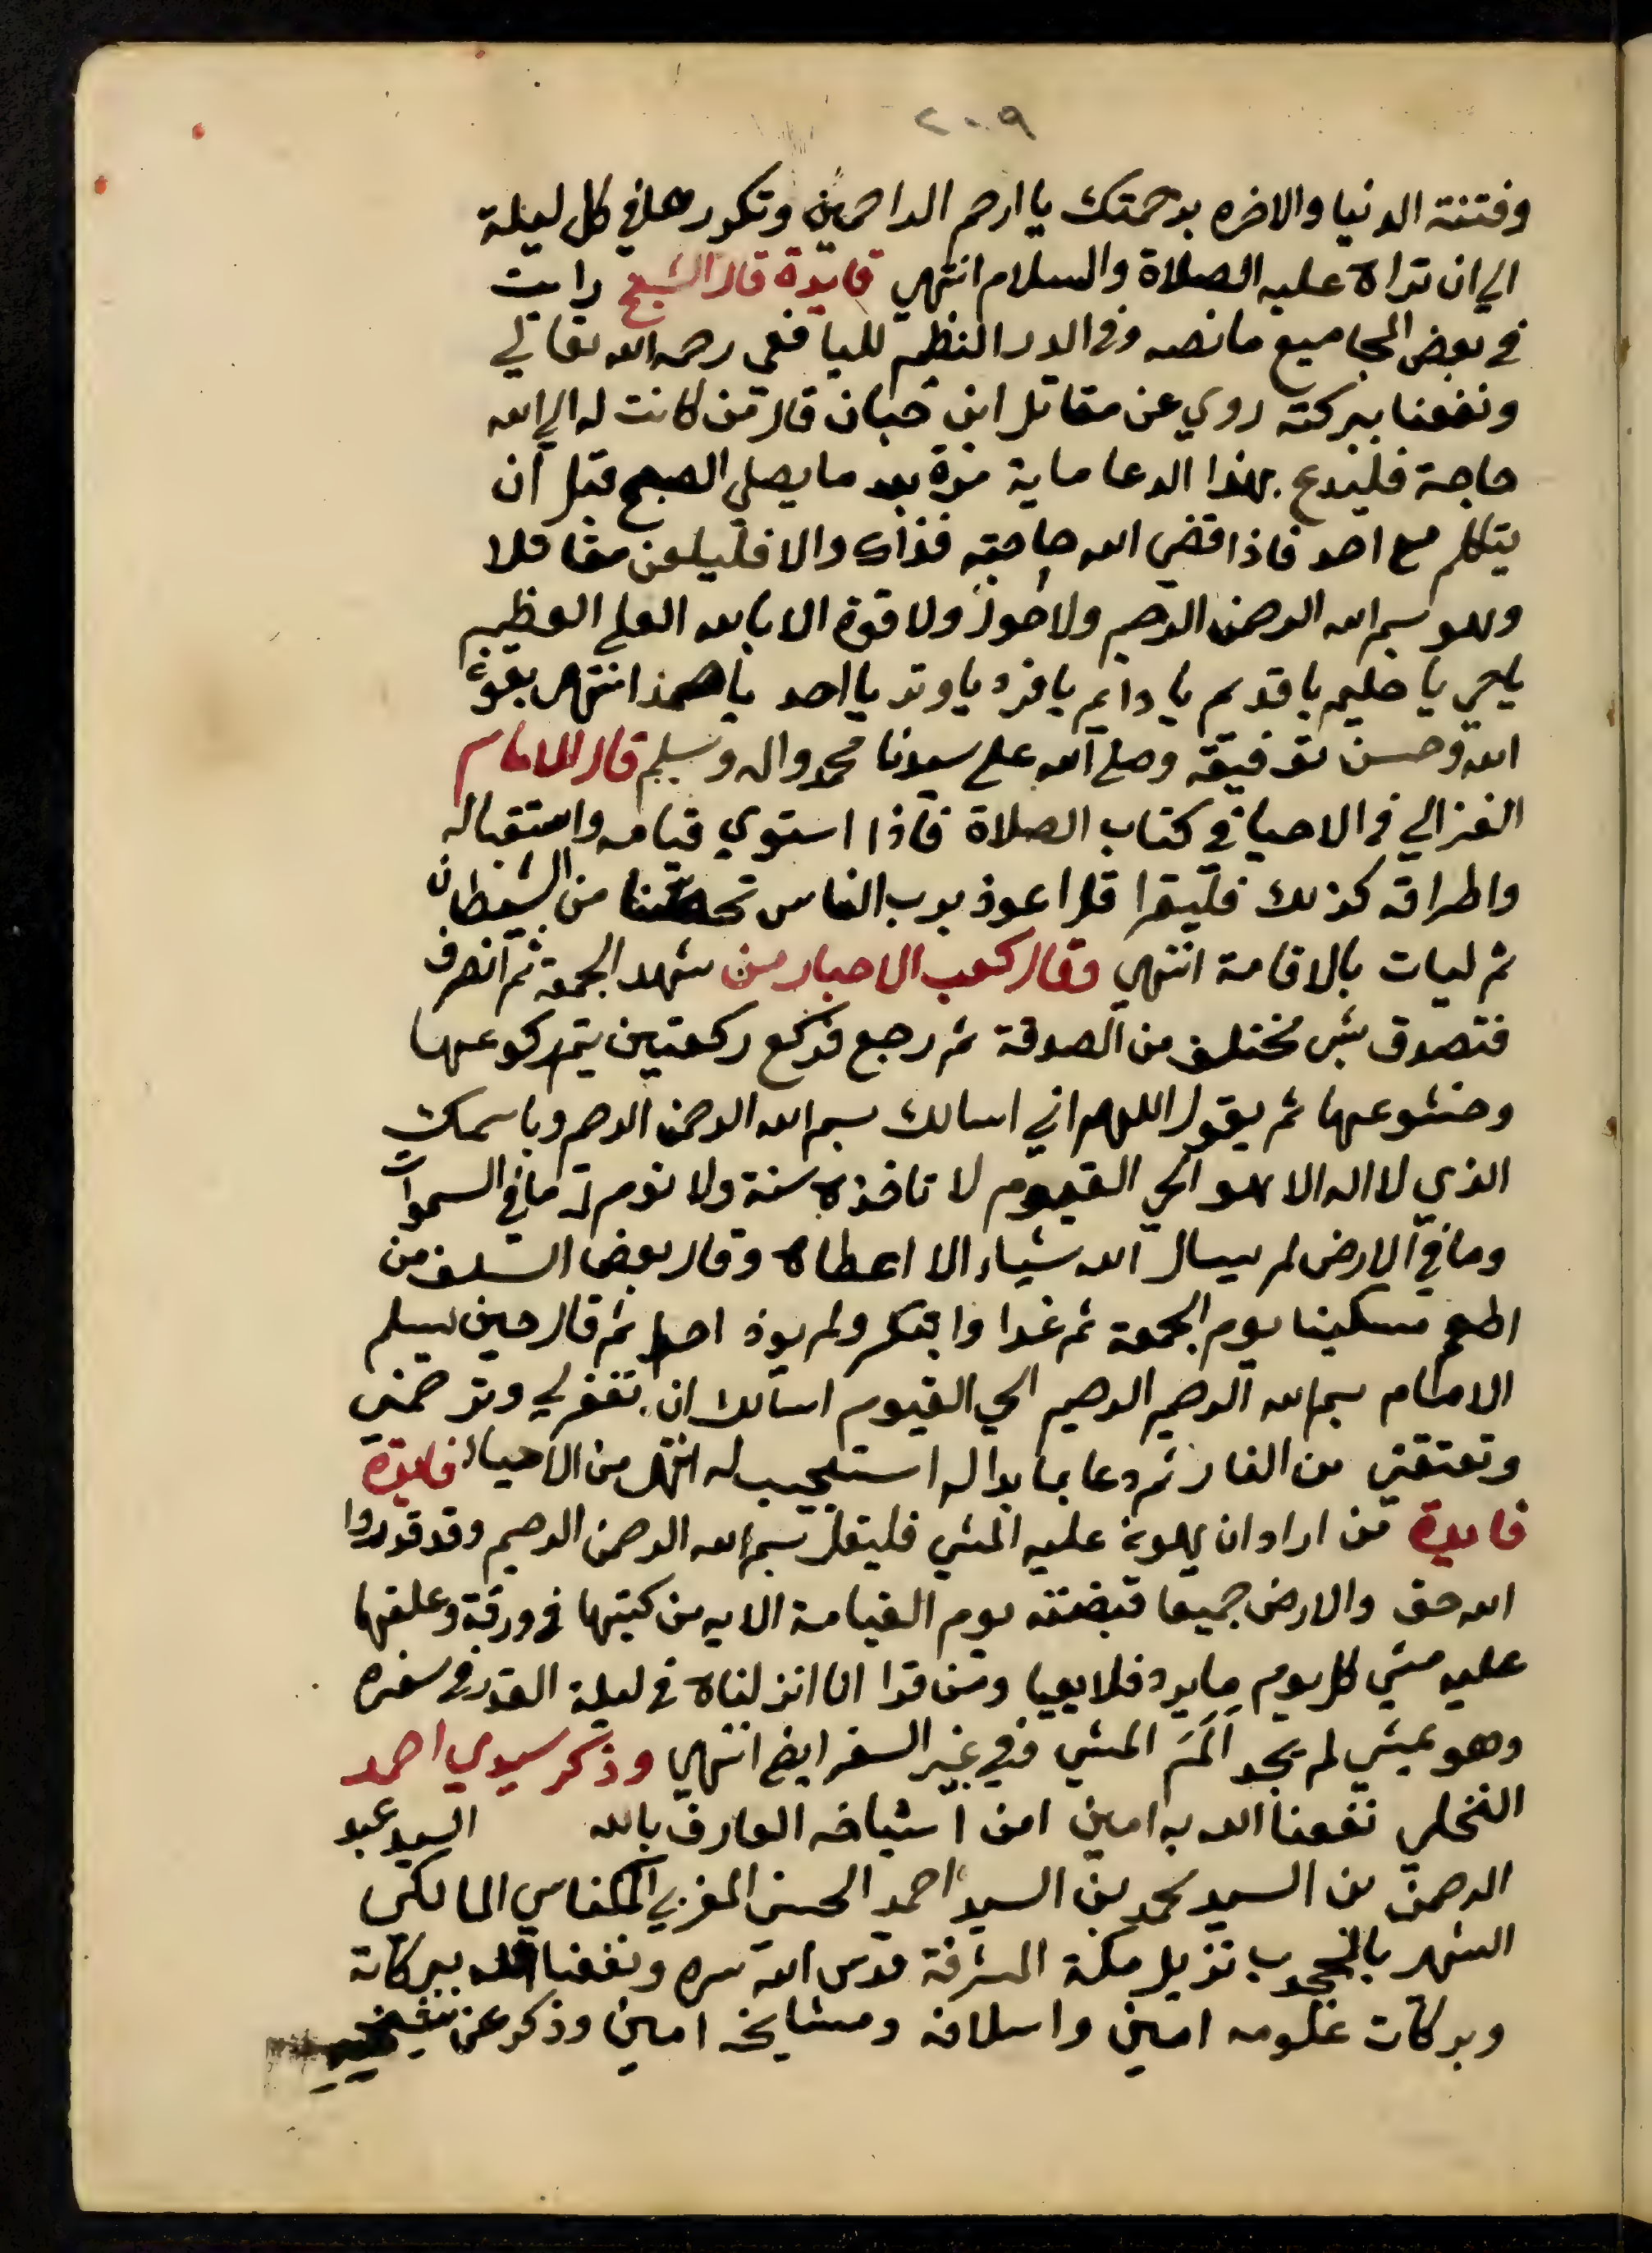 ٢٠٠٩
وفتنة الدنيا والاخره برحمتك يا ارحم الراحمين وتكررها في كل ليلة
الي ان تراه عليه الصلاة والسلام انتهي فايدة قال الشيخ رايت
في بعض المجاميع ما نصه وفي الدر النظيم لليافعي رحمه الله تعالي
ونفعنا ببركته روي عن مقاتل ابن حبان قال من كانت له الي الله
حاجة فليدع بهذا الدعا ماية مرة بعد ما يصلي الصبح قبل ان
يتكلم مع احد فاذا قضي الله حاجته فذاك والا فليلعن مقاتلا
وهو بسم الله الرحمن الرحيم ولا حول ولا قوة الا بالله العلي العظيم
ياحي يا حليم يا قديم يا دايم يا فرد يا وتر يا احد يا صمد انتهي بقوة
الله وحسن توفيقه وصلي الله علي سيدنا محمد واله وسلم قال الامام
الغزالي في الاحيا في كتاب الصلاة فاذا استوي قيامه واستقباله
واطراقه كذلك فليقرا قل اعوذ برب الناس تحصنا من الشيطان
ثم ليات بالاقامة انتهي وقال كعب الاحبار من شهد الجمعه ثم انصرف
فتصدق بشي مختلف من الصدقة ثم رجع فركع ركعتين يتم ركوعها
وخشوعها ثم يقول اللهم اني اسالك بسم الله الرحمن الرحيم وباسمك
الذي لا اله الا هو الحي القيوم لا تاخذه سنة ولا نوم له ما في السموات
وما في الارض لم يسال الله شياء الا اعطاه وقال بعض السلف من
اطعم مسكينا يوم الجمعة ثم غدا وابتكر ولم يوذ احدا ثم قال حين يسلم
الامام بسم الله الرحيم الرحيم الحي القيوم اسالك ان تغفر لي وترحمني
وتعتقني من النار ثم دعا بما بدا له استجيب له انتهي من الاحياء فايدة
فايدة من اراد ان يهون عليه المشي فليقل بسم الله الرحمن الرحيم وقد قدروا
الله حق والارض جميعا قبضته يوم القيامة الايه من كتبها في ورقة وعلقها
عليه مشي كل يوم ما يرد فلا يعيا ومن قرا انا انزلناه في ليلة القدر في سفره
وهو يمشي لم يجد الم المشي وفي غير السفر ايض انتهي وذكر سيدي احمد
النخلي نفعنا الله به امين امن اشياخه العارف بالله السيد عبد
الرحمن بن السيد محمد بن السيد احمد الحسني المغربي المكناسي المالكي
الشهر بالمحجوب نزيل مكة المشرفة قدس الله سره ونفعنا الله ببركاته
وبركات علومه امين واسلافه ومشايخه امين وذكر عن